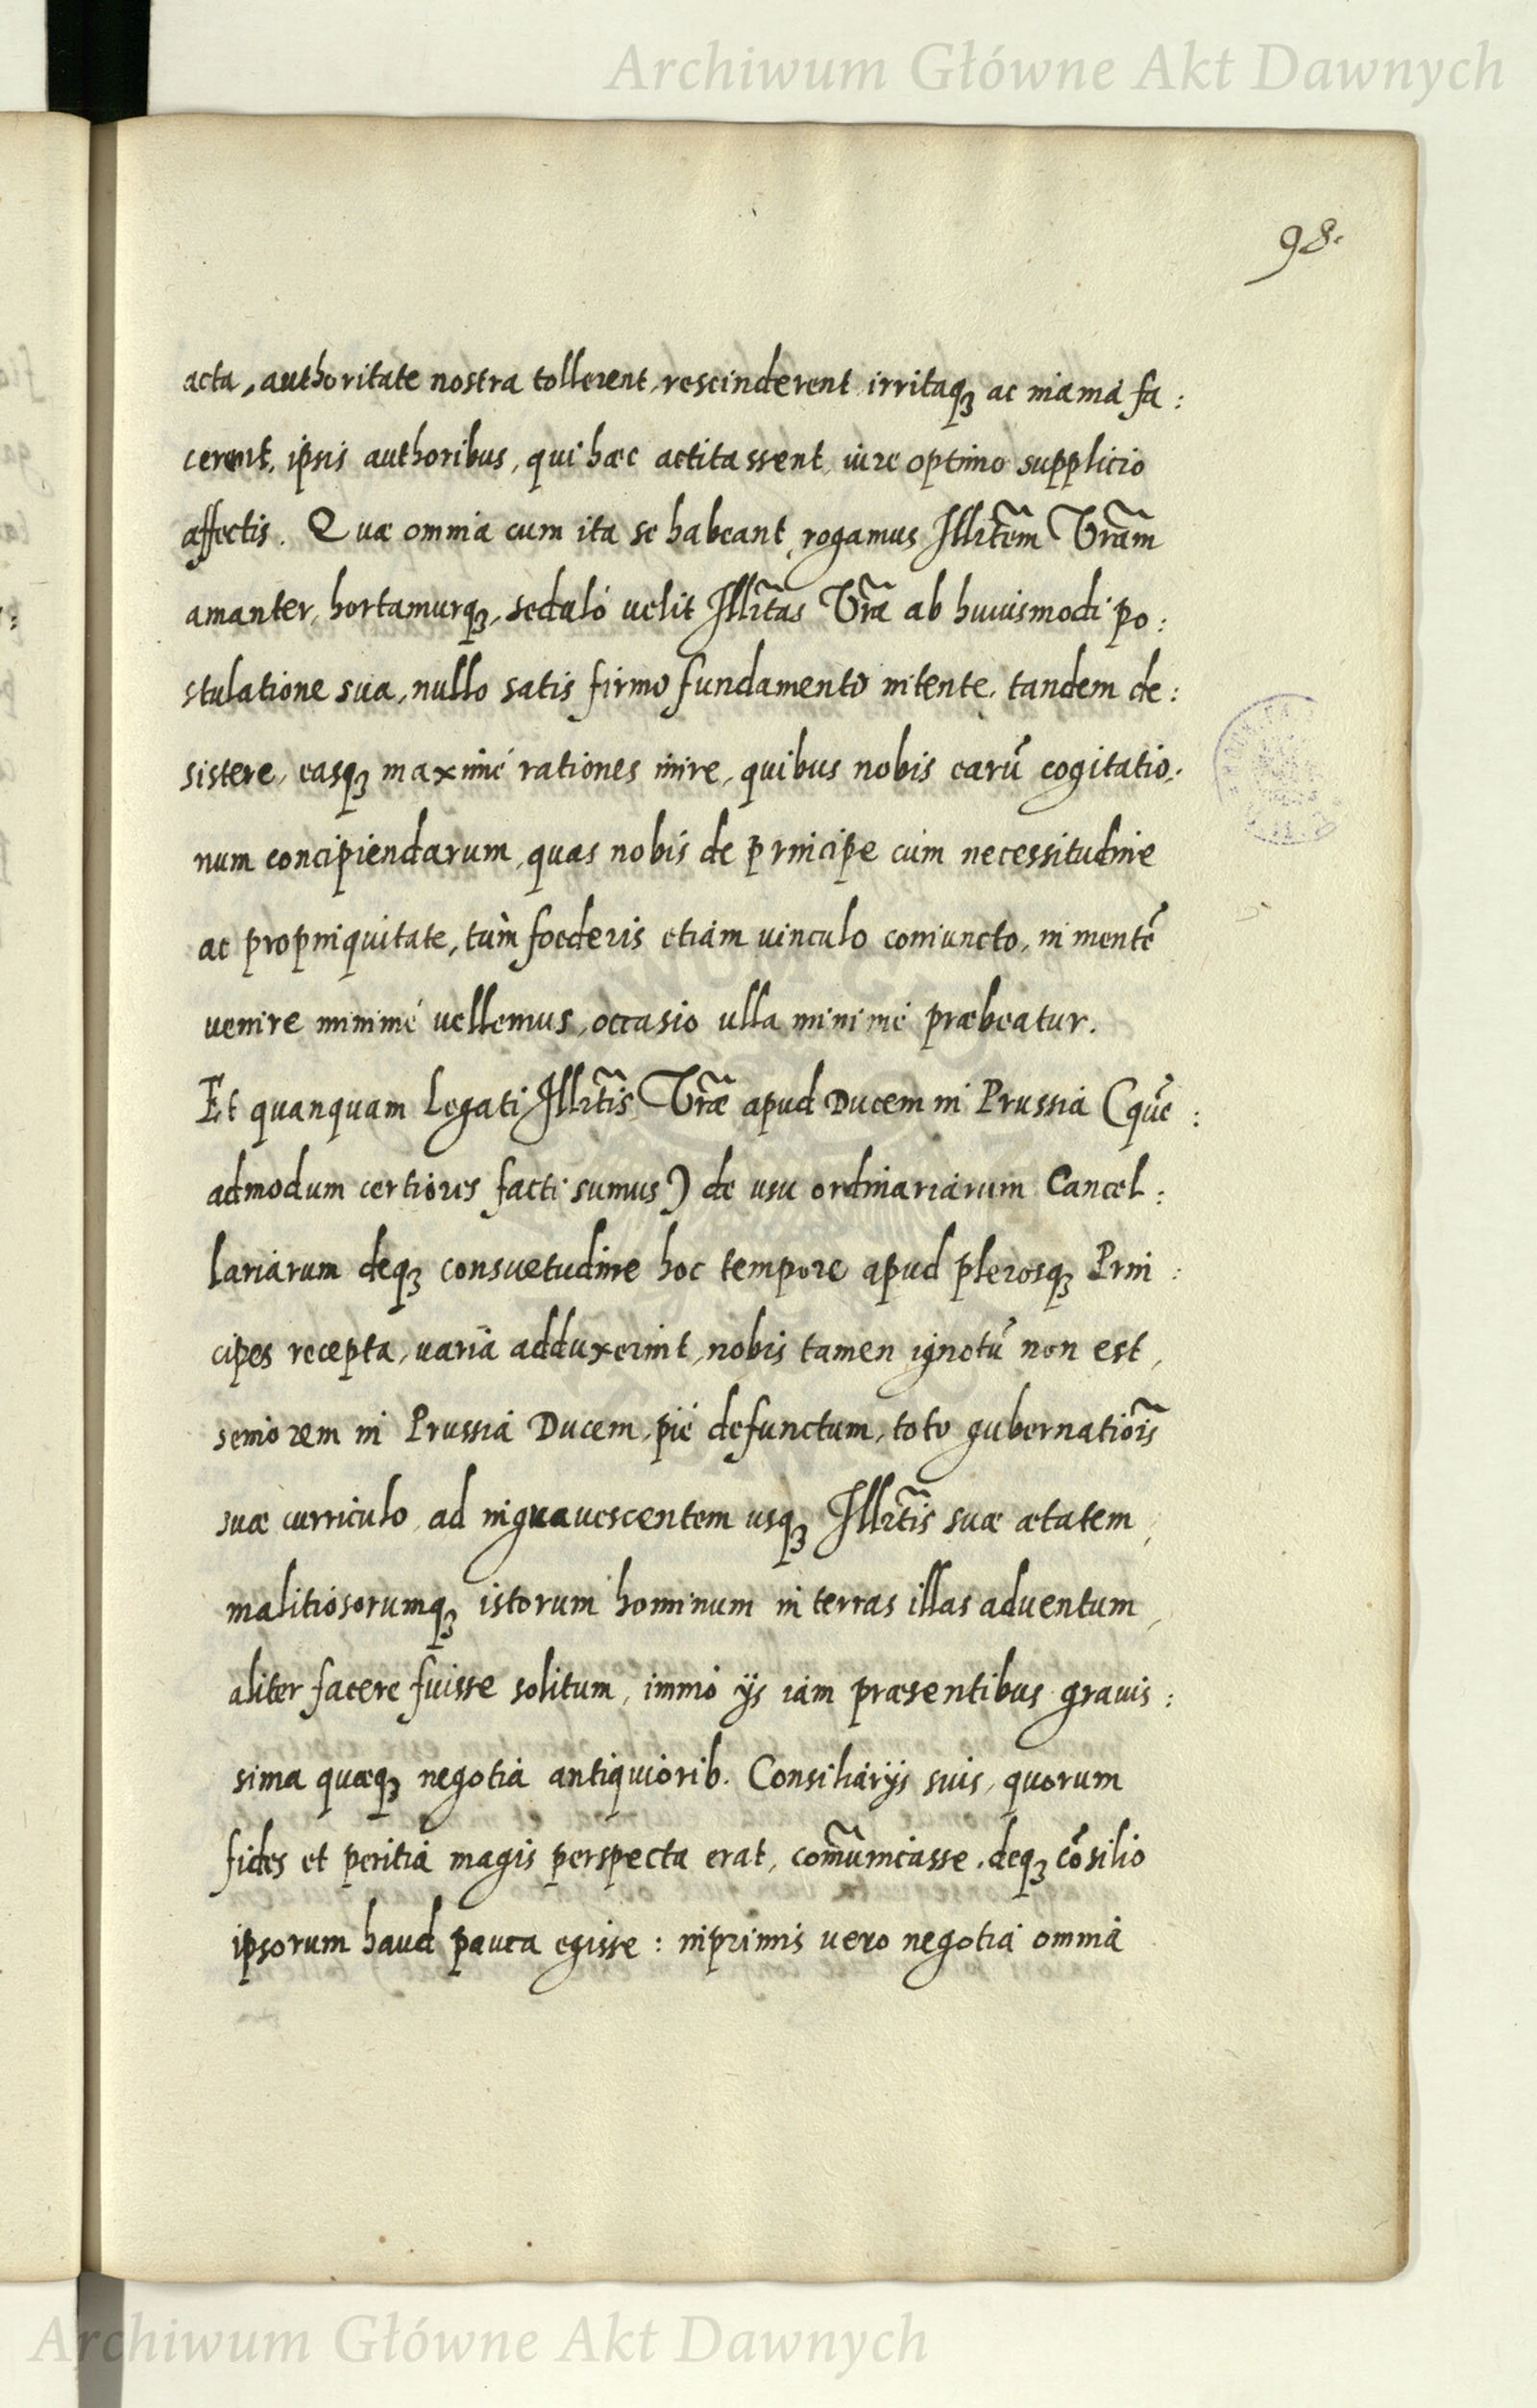 Archiwum Główne Akt Dawnych
98.
acta, authoritate nostra tollerent, rescinderent irritaqꝫ ac inania fa:
cerent, ipsis authoribus, qui hæc actitassent, iure optimo supplicio
affectis. Quæ omnia cum ita se habeant, rogamus Illrt̃em Vr̃am
amanter, hortamurqꝫ, seduló uelit Illrt̃as Vr̃a ab huiusmodi po:
stulatione sua, nullo satis firmo fundamento nitente, tandem de:
sistere, easqꝫ maximé rationes inire, quibus nobis earũ cogitatio:
num concipiendarum, quas nobis de principe cùm necessitudine
ac propinquitate, tùm foederis etiam uinculo coniuncto, in mentẽ
uenire minimé uellemus, occasio ulla minimé præbeatur.
Et quanquam Legati Illrt̃is Vr̃æ apud Ducem in Prussia (quẽ:
admodum certiores facti sumus) de usu ordinariarum Cancel:
lariarum deqꝫ consuetudine hoc tempore apud plerosqꝫ Prin:
cipes recepta, uaria adduxerint, nobis tamen ignotũ non est,
seniorem in Prussia Ducem, pié defunctum, toto gubernatiõis
suæ curriculo, ad ingrauescentem usqꝫ Illrt̃is suæ ætatem,
malitiosorumqꝫ istorum hominum in terras illas aduentum,
aliter facere fuisse solitum, immò ijs iam præsentibus grauis:
sima quæqꝫ negotia antiquiorib. Consiliarijs suis, quorum
fides et peritia magis perspecta erat, com̃unicasse, deqꝫ cõsilio
ipsorum haud pauca egisse: inprimis uero negotia omnia
Archiwum Główne Akt Dawnych